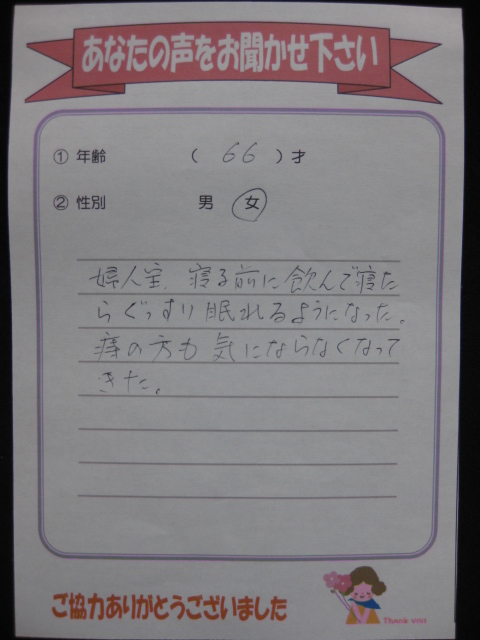 あなたの声をお聞かせ下さい
① 年齢 ( 66 ) 才
② 性別 男 女
婦人宝、寝る前に飲んで寝た
らぐっすり眠れるようになった。
痔の方も気にならなくなって
きた。
ご協力ありがとうございました
Thank you